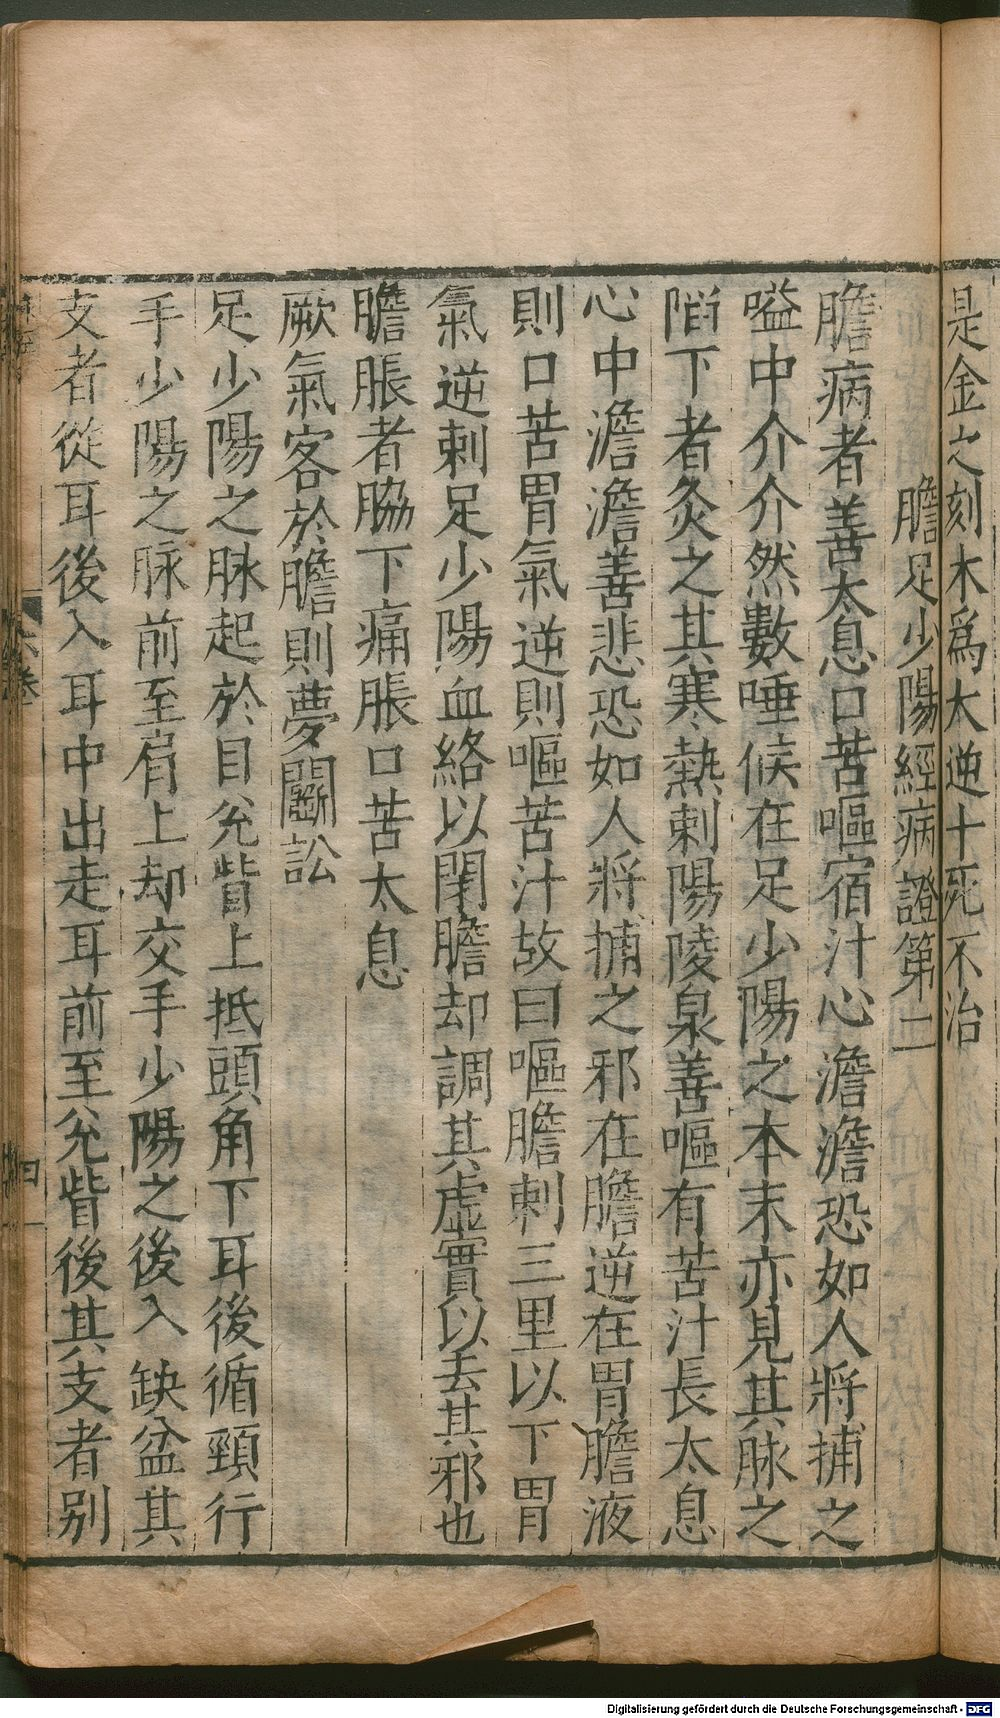 是金之刻木爲大逆十死不治
膽足少陽經病證第二
膽病者善太息口苦嘔宿汁心澹澹恐如人將捕之
嗌中介介然數唾候在足少陽之本末亦見其脉之
陷下者灸之其寒熱刺陽陵泉善嘔有苦汁長太息
心中澹澹善悲恐如人將捕之邪在膽逆在胃膽液
則口苦胃氣逆則嘔苦汁故曰嘔膽刺三里以下胃
氣逆刺足少陽血絡以閉膽却調其虛實以去其邪也
膽脹者脇下痛脹口苦太息
厥氣客於膽則夢鬭訟
足少陽之脉起於目兊眥上抵頭角下耳後循頸行
手少陽之脉前至肩上却交手少陽之後入缺盆其
支者從耳後入耳中出走耳前至兊眥後其支者别
六卷
四
Digitalisierung gefördert durch die Deutsche Forschungsgemeinschaft - DFG